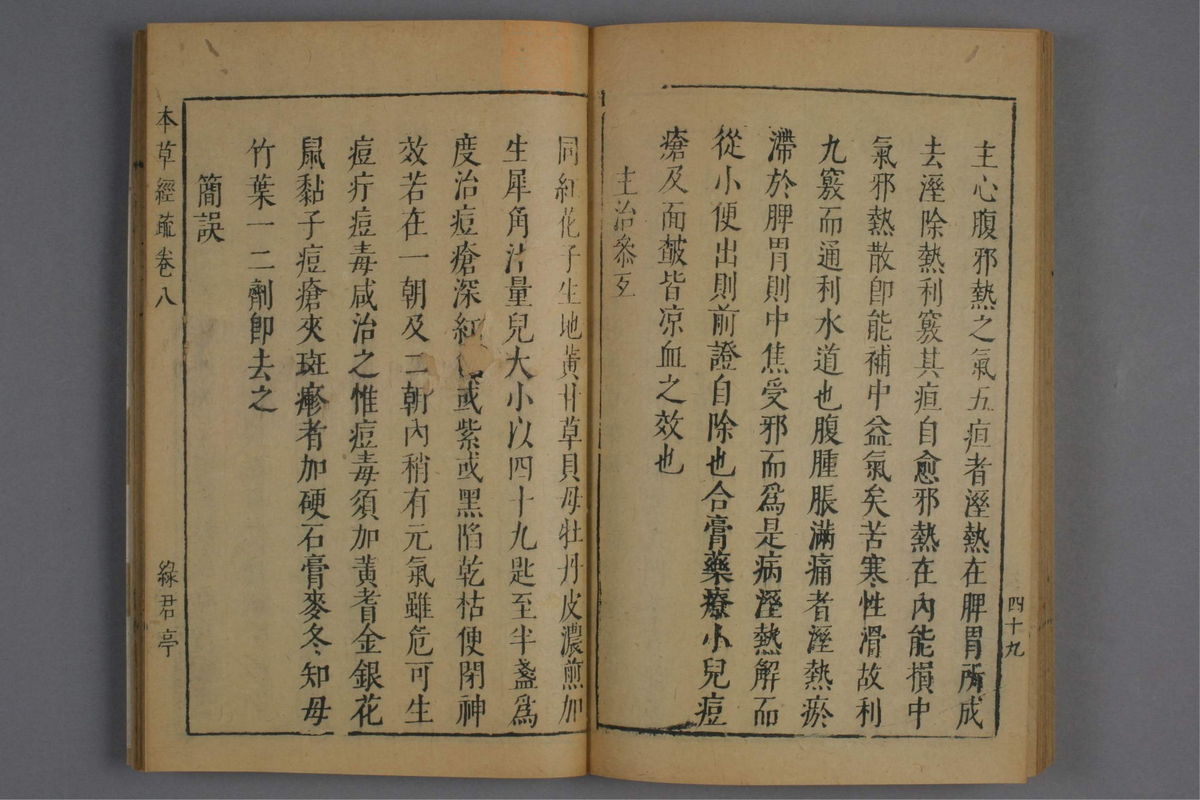 四十九
主心腹邪熱之氣五疸者溼熱在脾胃所成
去溼除熱利竅其疸自愈邪熱在內能損中
氣邪熱散卽能補中益氣矣苦寒性滑故利
九竅而通利水道也腹腫脹滿痛者溼熱瘀
滯於脾胃則中焦受邪而爲是病溼熱解而
從小便出則前證自除也合膏藥療小兒痘
瘡及面皯皆凉血之效也
主治參互
同紅花子生地黃甘草貝母牡丹皮濃煎加
生犀角汁量兒大小以四十九匙至半盞爲
度治痘瘡深紅或紫或黑陷乾枯便閉神
效若在一朝及二朝內稍有元氣雖危可生
痘疔痘毒咸治之惟痘毒須加黃耆金銀花
鼠黏子痘瘡夾斑疹者加硬石膏麥冬知母
竹葉一二劑卽去之
簡誤
本草經疏卷八
綠君亭